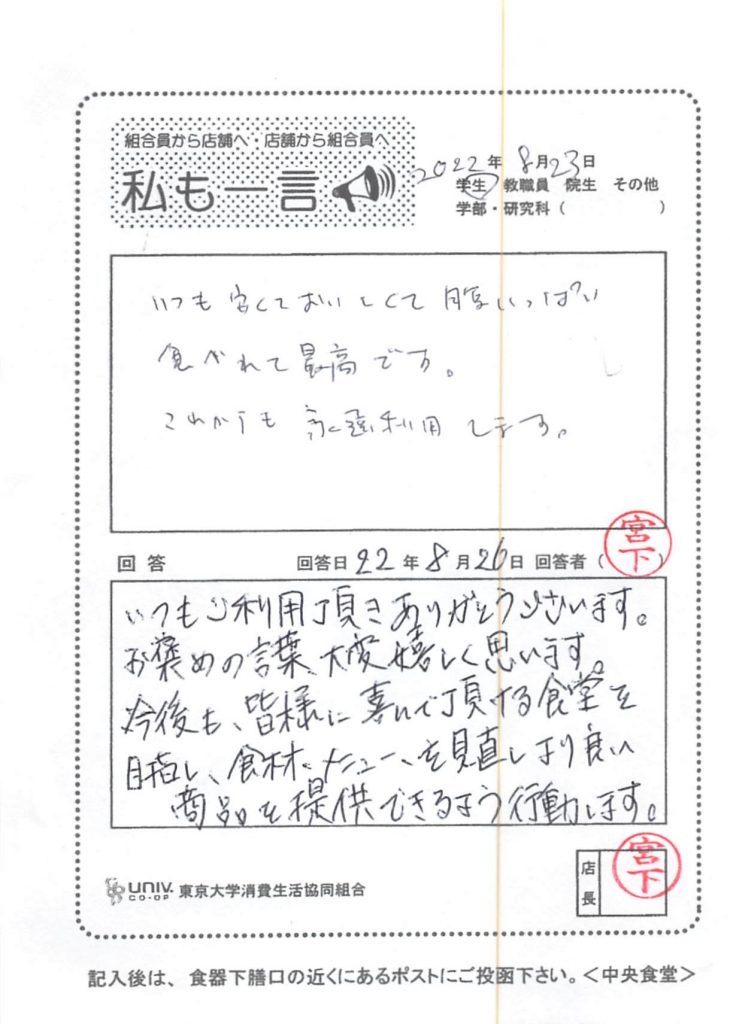 組合員から店舗へ・店舗から組合員へ
私も一言
2022年 8月23日
学生 教職員 院生 その他
学部・研究科（　　　）
いつも安くておいしくて腹いっぱい
食べれて最高です。
これからも永遠利用します。
回答 回答日 22年 8月26日 回答者（宮下）
いつもご利用頂きありがとうございます。
お褒めの言葉、大変嬉しく思います。
今後も、皆様に喜んで頂ける食堂を
目指し、食材、メニュー、を見直しより良い
商品を提供できるよう行動します。
店長 宮下
UNIV. CO-OP 東京大学消費生活協同組合
記入後は、食器下膳口の近くにあるポストにご投函下さい。＜中央食堂＞